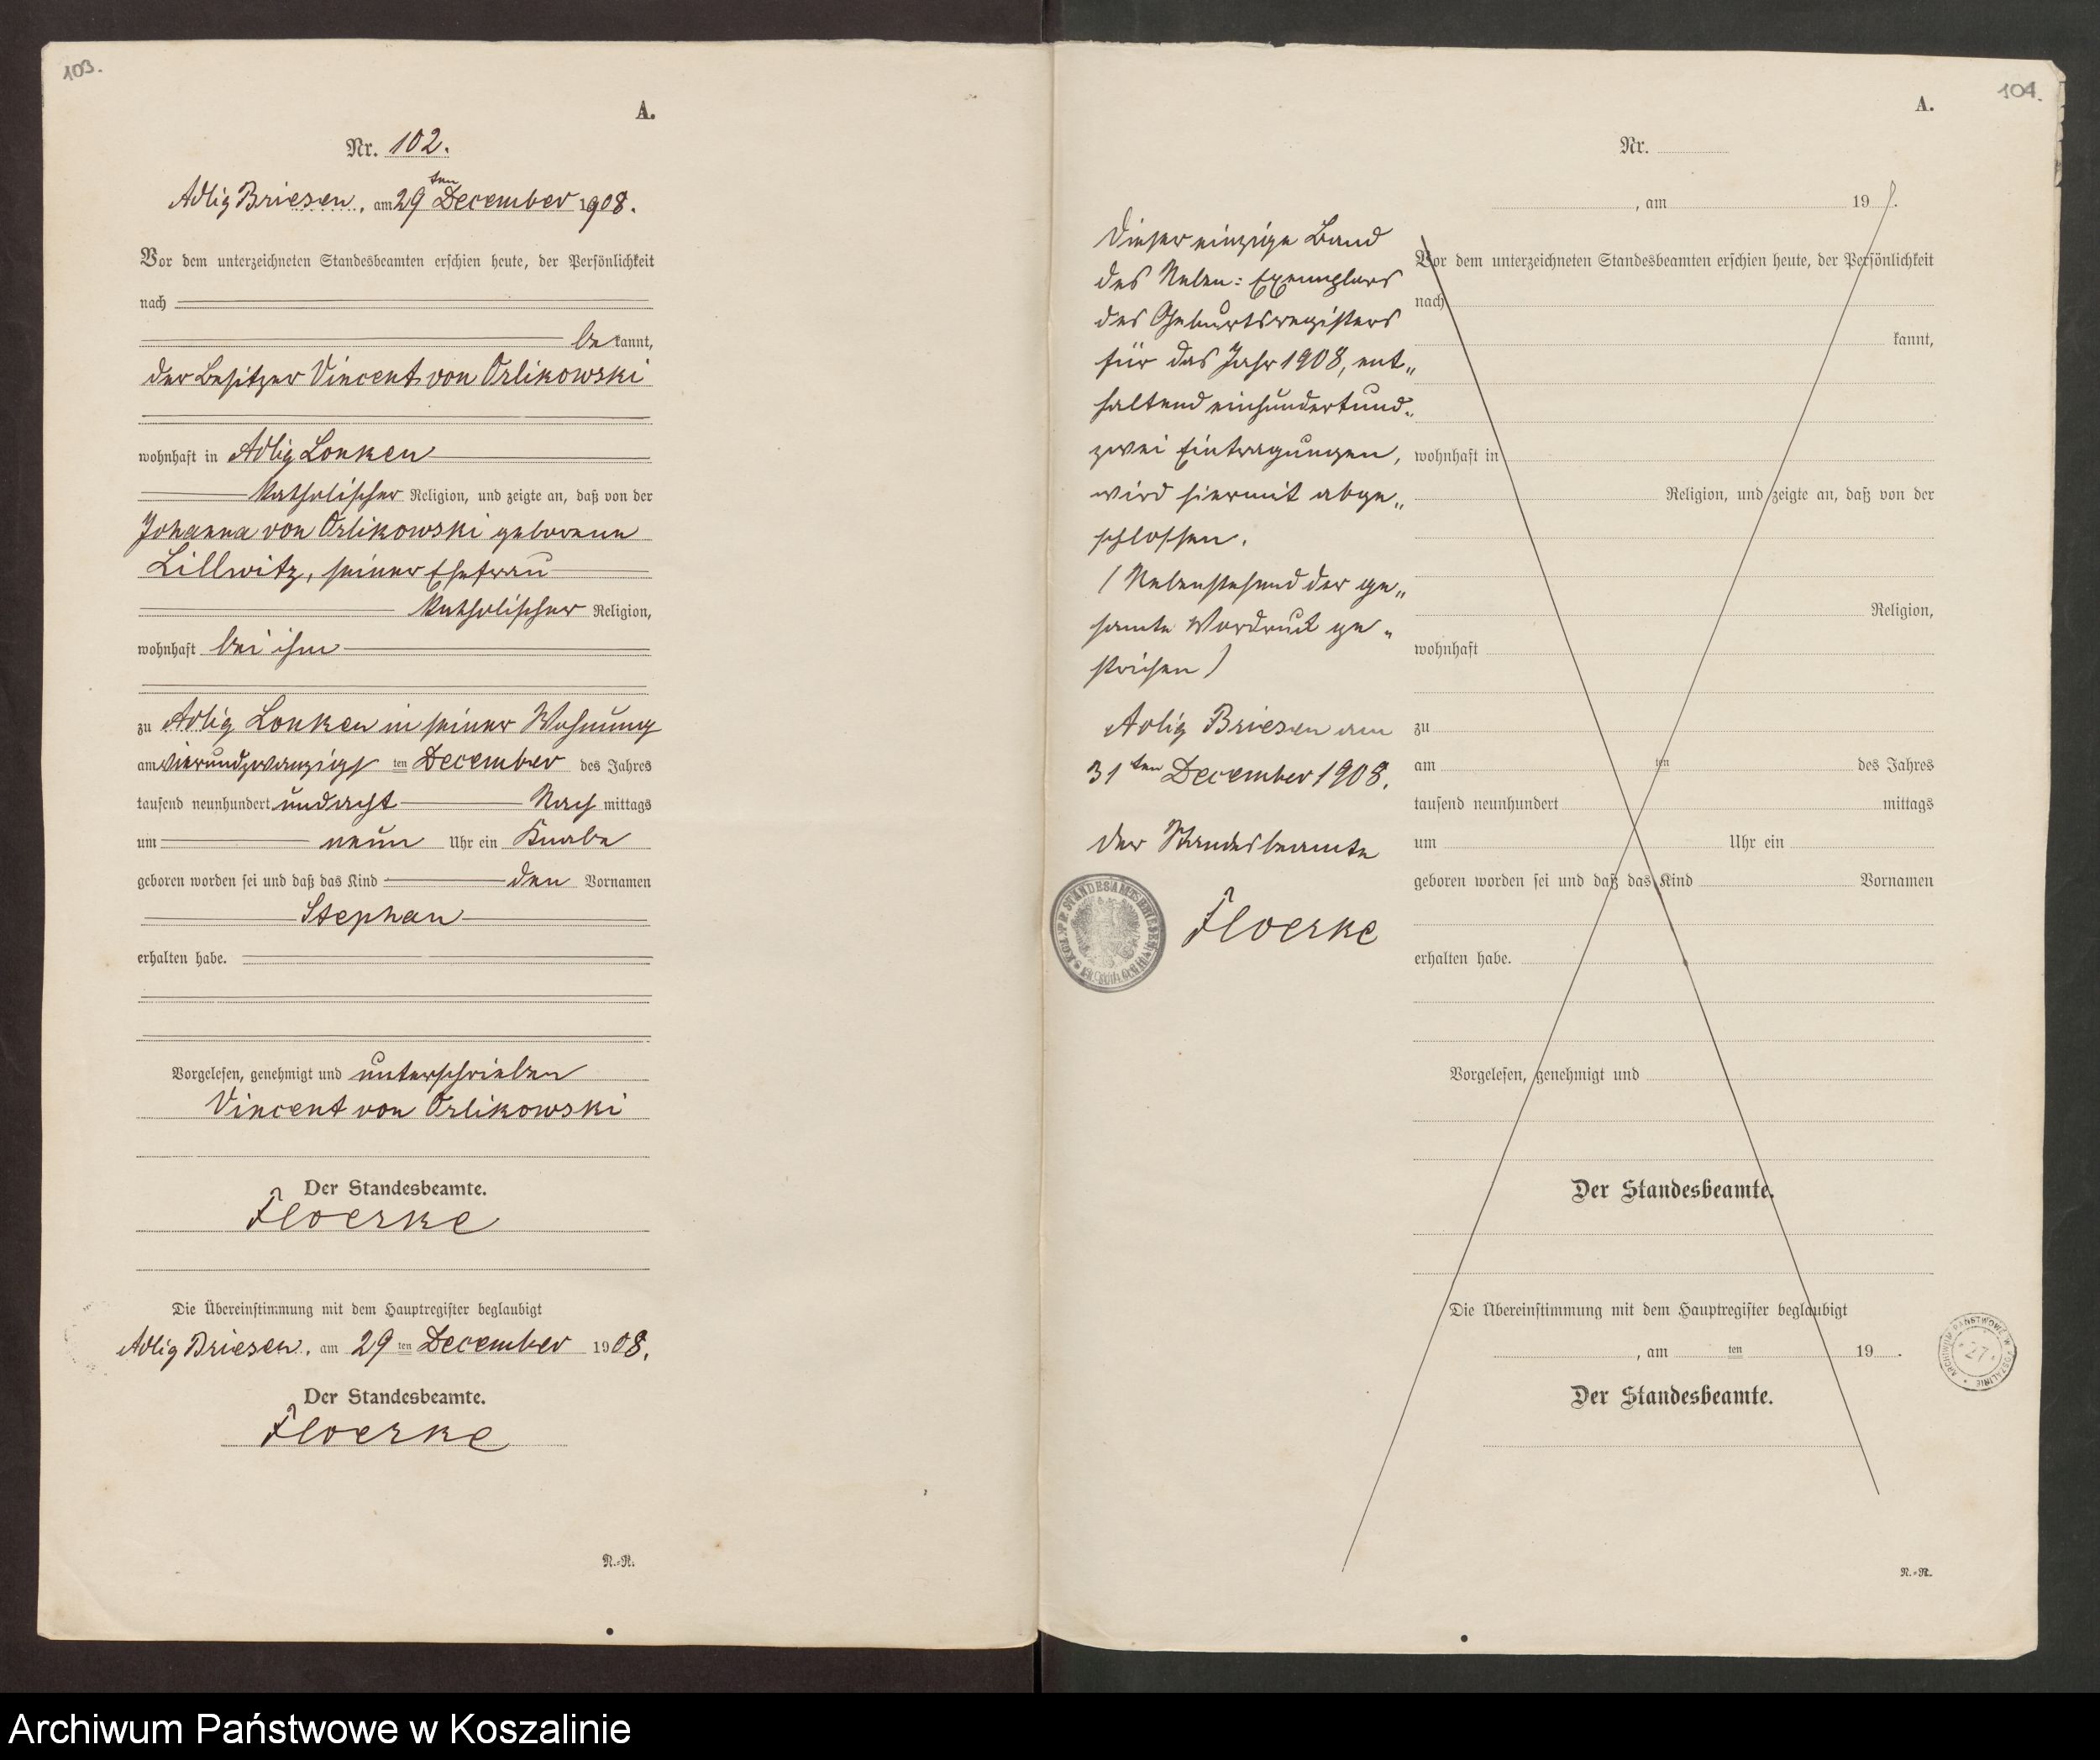 103.
A.
Nr. 102.
Adlig Briesen, am 29ten December 1908.
Vor dem unterzeichneten Standesbeamten erschien heute, der Persönlichkeit
nach
be kannt,
der Besitzer Vincent von Orlikowski
wohnhaft in Adlig Lonken
katholischer Religion, und zeigte an, daß von der
Johanna von Orlikowski geborene
Lillwitz, seiner Ehefrau
katholischer Religion,
wohnhaft bei ihm
zu Adlig Lonken in seiner Wohnung
am vierundzwanzigs ten December des Jahres
tausend neunhundert undacht Nach mittags
um neun Uhr ein Knabe
geboren worden sei und daß das Kind den Vornamen
Stephan
erhalten habe.
Vorgelesen, genehmigt und unterschrieben
Vincent von Orlikowski
Der Standesbeamte.
Floerke
Die Übereinstimmung mit dem Hauptregister beglaubigt
Adlig Briesen, am 29 ten December 1908.
Der Standesbeamte.
Floerke
N.-R.
104.
A.
Nr.
, am 19 .
Dieser einzige Band
des Neben: Exemplars
des Geburtsregisters
für das Jahr 1908, ent„
haltend einhundertund„
zwei Eintragungen,
wird hiermit abge„
schlossen.
(Nebenstehend der ge„
samte Vordruck ge„
strichen)
Adlig Briesen am
31ten December 1908.
Der Standesbeamte
Floerke
Vor dem unterzeichneten Standesbeamten erschien heute, der Persönlichkeit
nach
kannt,
wohnhaft in
Religion, und zeigte an, daß von der
Religion,
wohnhaft
zu
am ten des Jahres
tausend neunhundert mittags
um Uhr ein
geboren worden sei und daß das Kind Vornamen
erhalten habe.
Vorgelesen, genehmigt und
Der Standesbeamte.
Die Übereinstimmung mit dem Hauptregister beglaubigt
, am ten 19 .
Der Standesbeamte.
N.-R.
ARCHIWUM PAŃSTWOWE W KOSZALINIE
27
Archiwum Państwowe w Koszalinie